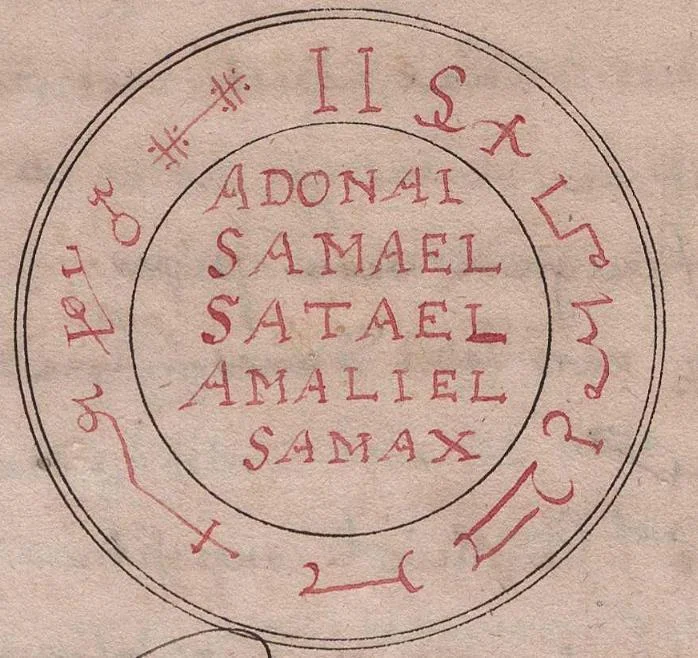 ADONAI
SAMAEL
SATAEL
AMALIEL
SAMAX